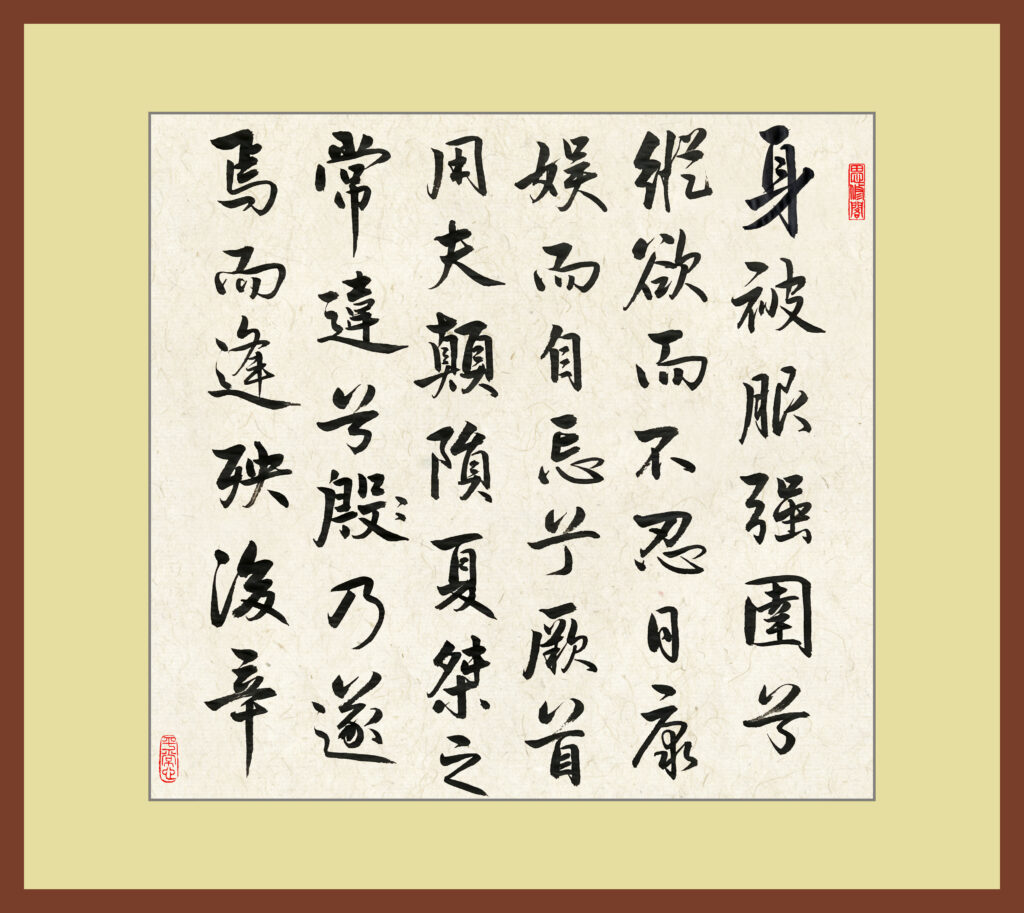 思修閣
身被服强圉兮
縱欲而不忍日康
娱而自忘兮厥首
用夫顛隕夏桀之
常違兮殷乃遂
焉而逢殃後辛
平常心